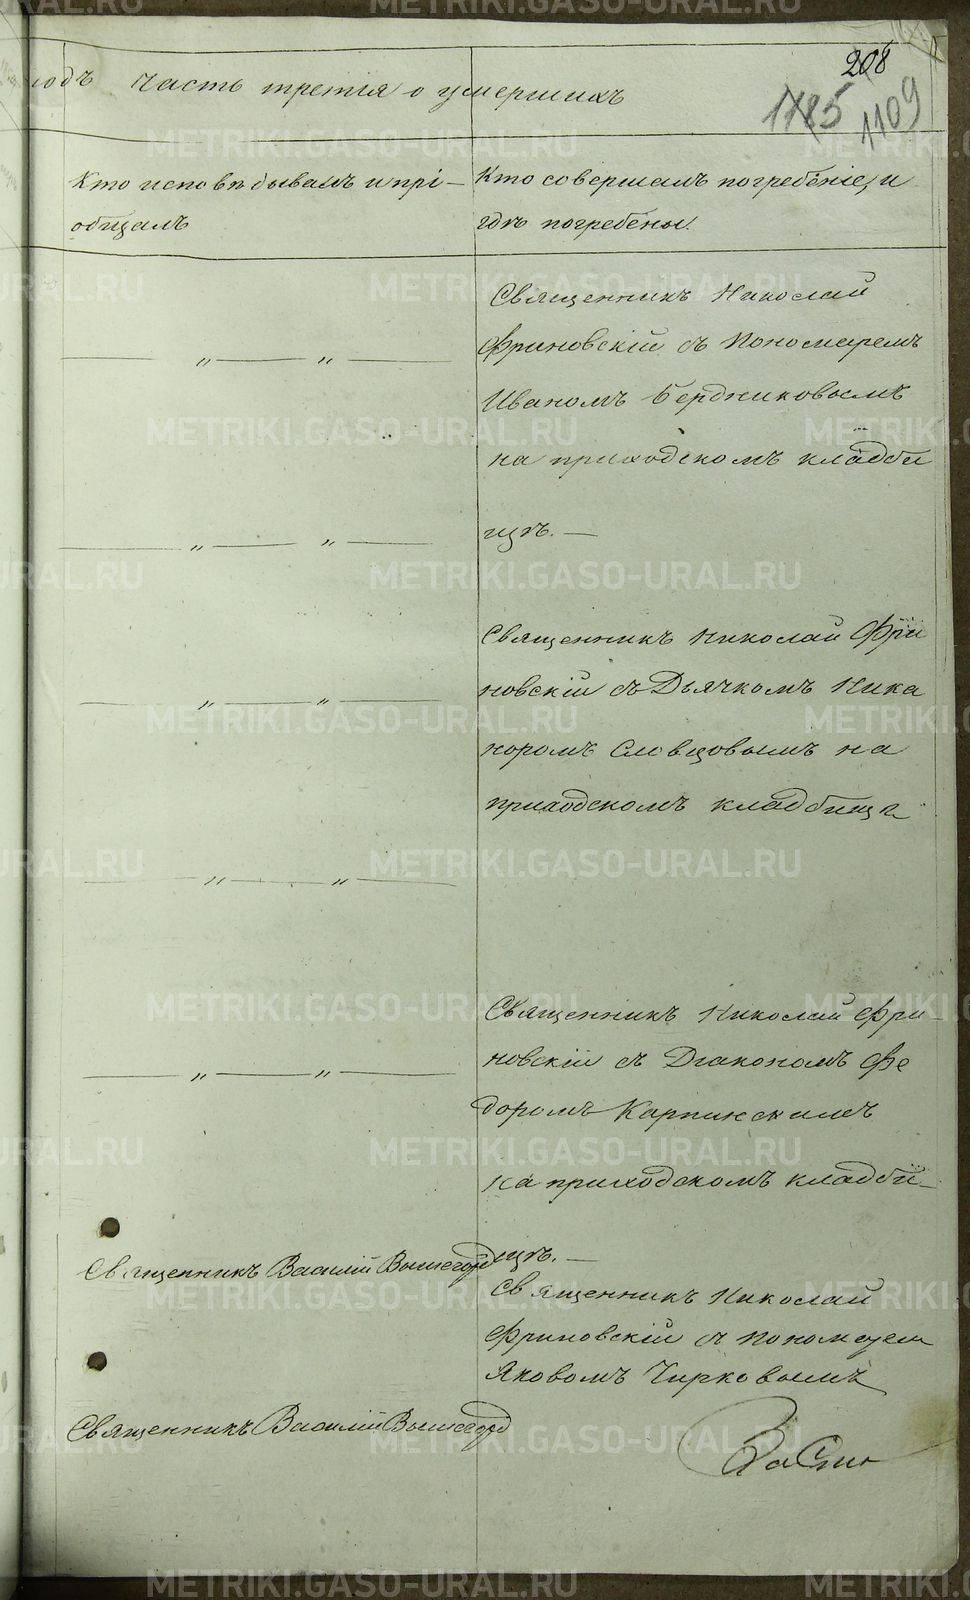 208
1785
1109
годъ часть третія о умершихъ
Кто исповѣдывалъ и прі-
общалъ
Кто совершалъ погребеніе, и
гдѣ погребены.
Священникъ Николай
Фриновскій съ Пономаремъ
Иваномъ Бердниковымъ
на приходскомъ кладби
щѣ. —
— „ — „ —
— „ — „ —
Священникъ Николай Фри
новскій съ Дьячкомъ Ника
норомъ Словцовымъ на
приходскомъ кладбищѣ
— „ — „ —
— „ — „ —
Священникъ Николай Фри-
новскій съ Діакономъ Фе
доромъ Карпинскимъ
на приходскомъ кладби-
щѣ. —
— „ — „ —
Священникъ Василій Вышегор
Священникъ Николай
Фриновскій съ Пономарем
Яковомъ Чирковымъ
Священникъ Василій Вышегор
METRIKI.GASO-URAL.RU